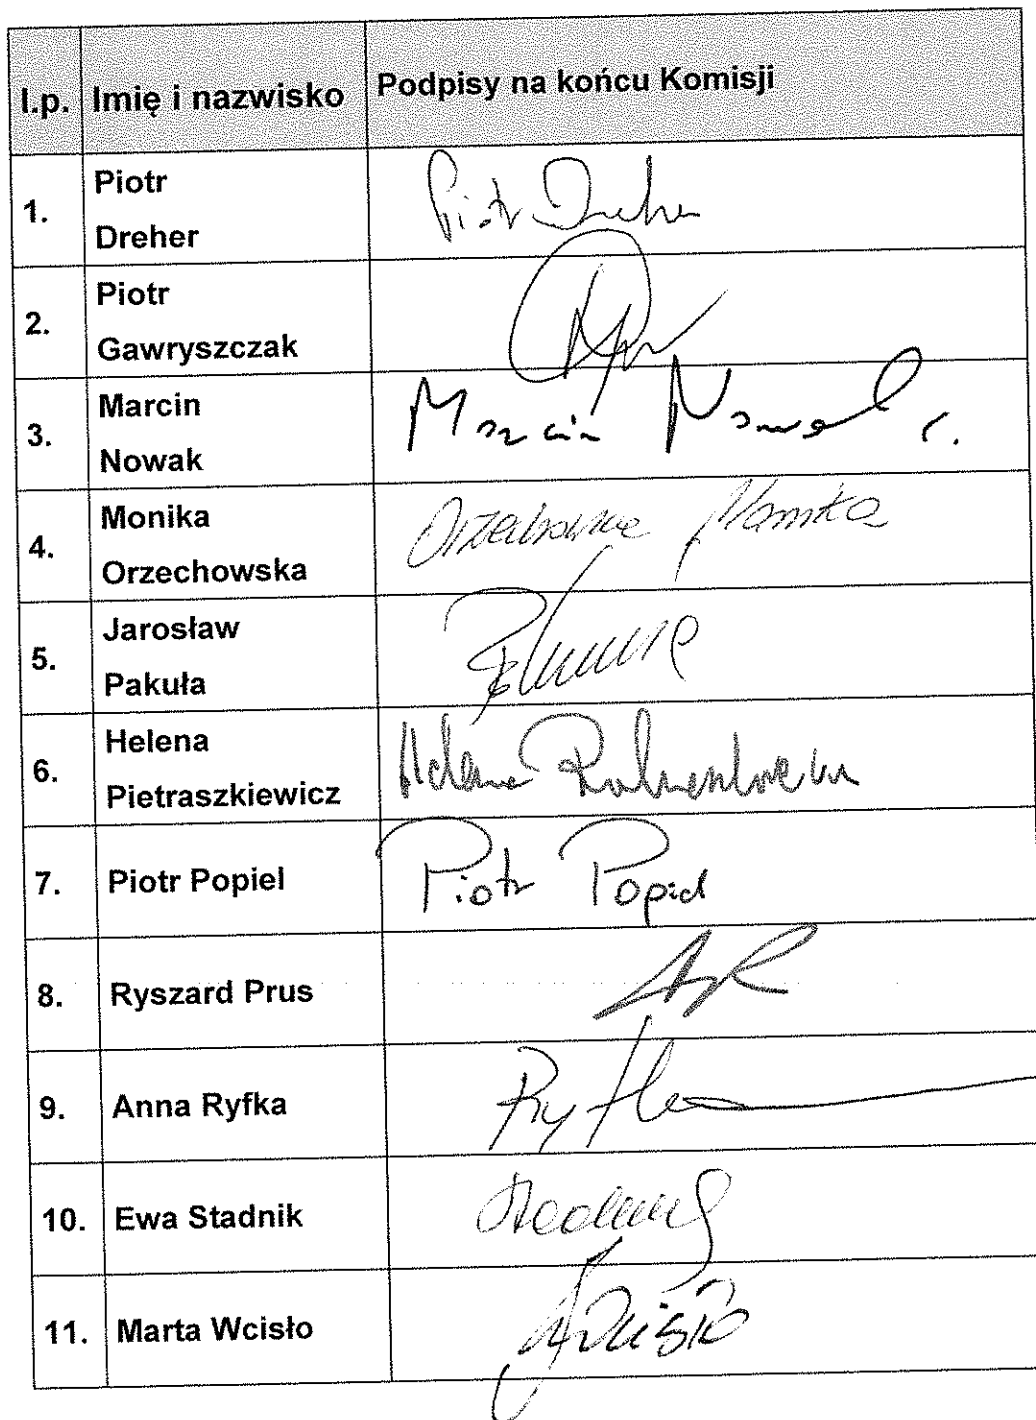 l.p. Imię i nazwisko Podpisy na końcu Komisji
1. Piotr Dreher Piotr Dreher
2. Piotr Gawryszczak
3. Marcin Nowak Marcin Nowak
4. Monika Orzechowska Orzechowska Monika
5. Jarosław Pakuła
6. Helena Pietraszkiewicz Helena
7. Piotr Popiel Piotr Popiel
8. Ryszard Prus
9. Anna Ryfka Ryfka
10. Ewa Stadnik Stadnik
11. Marta Wcisło Wcisło